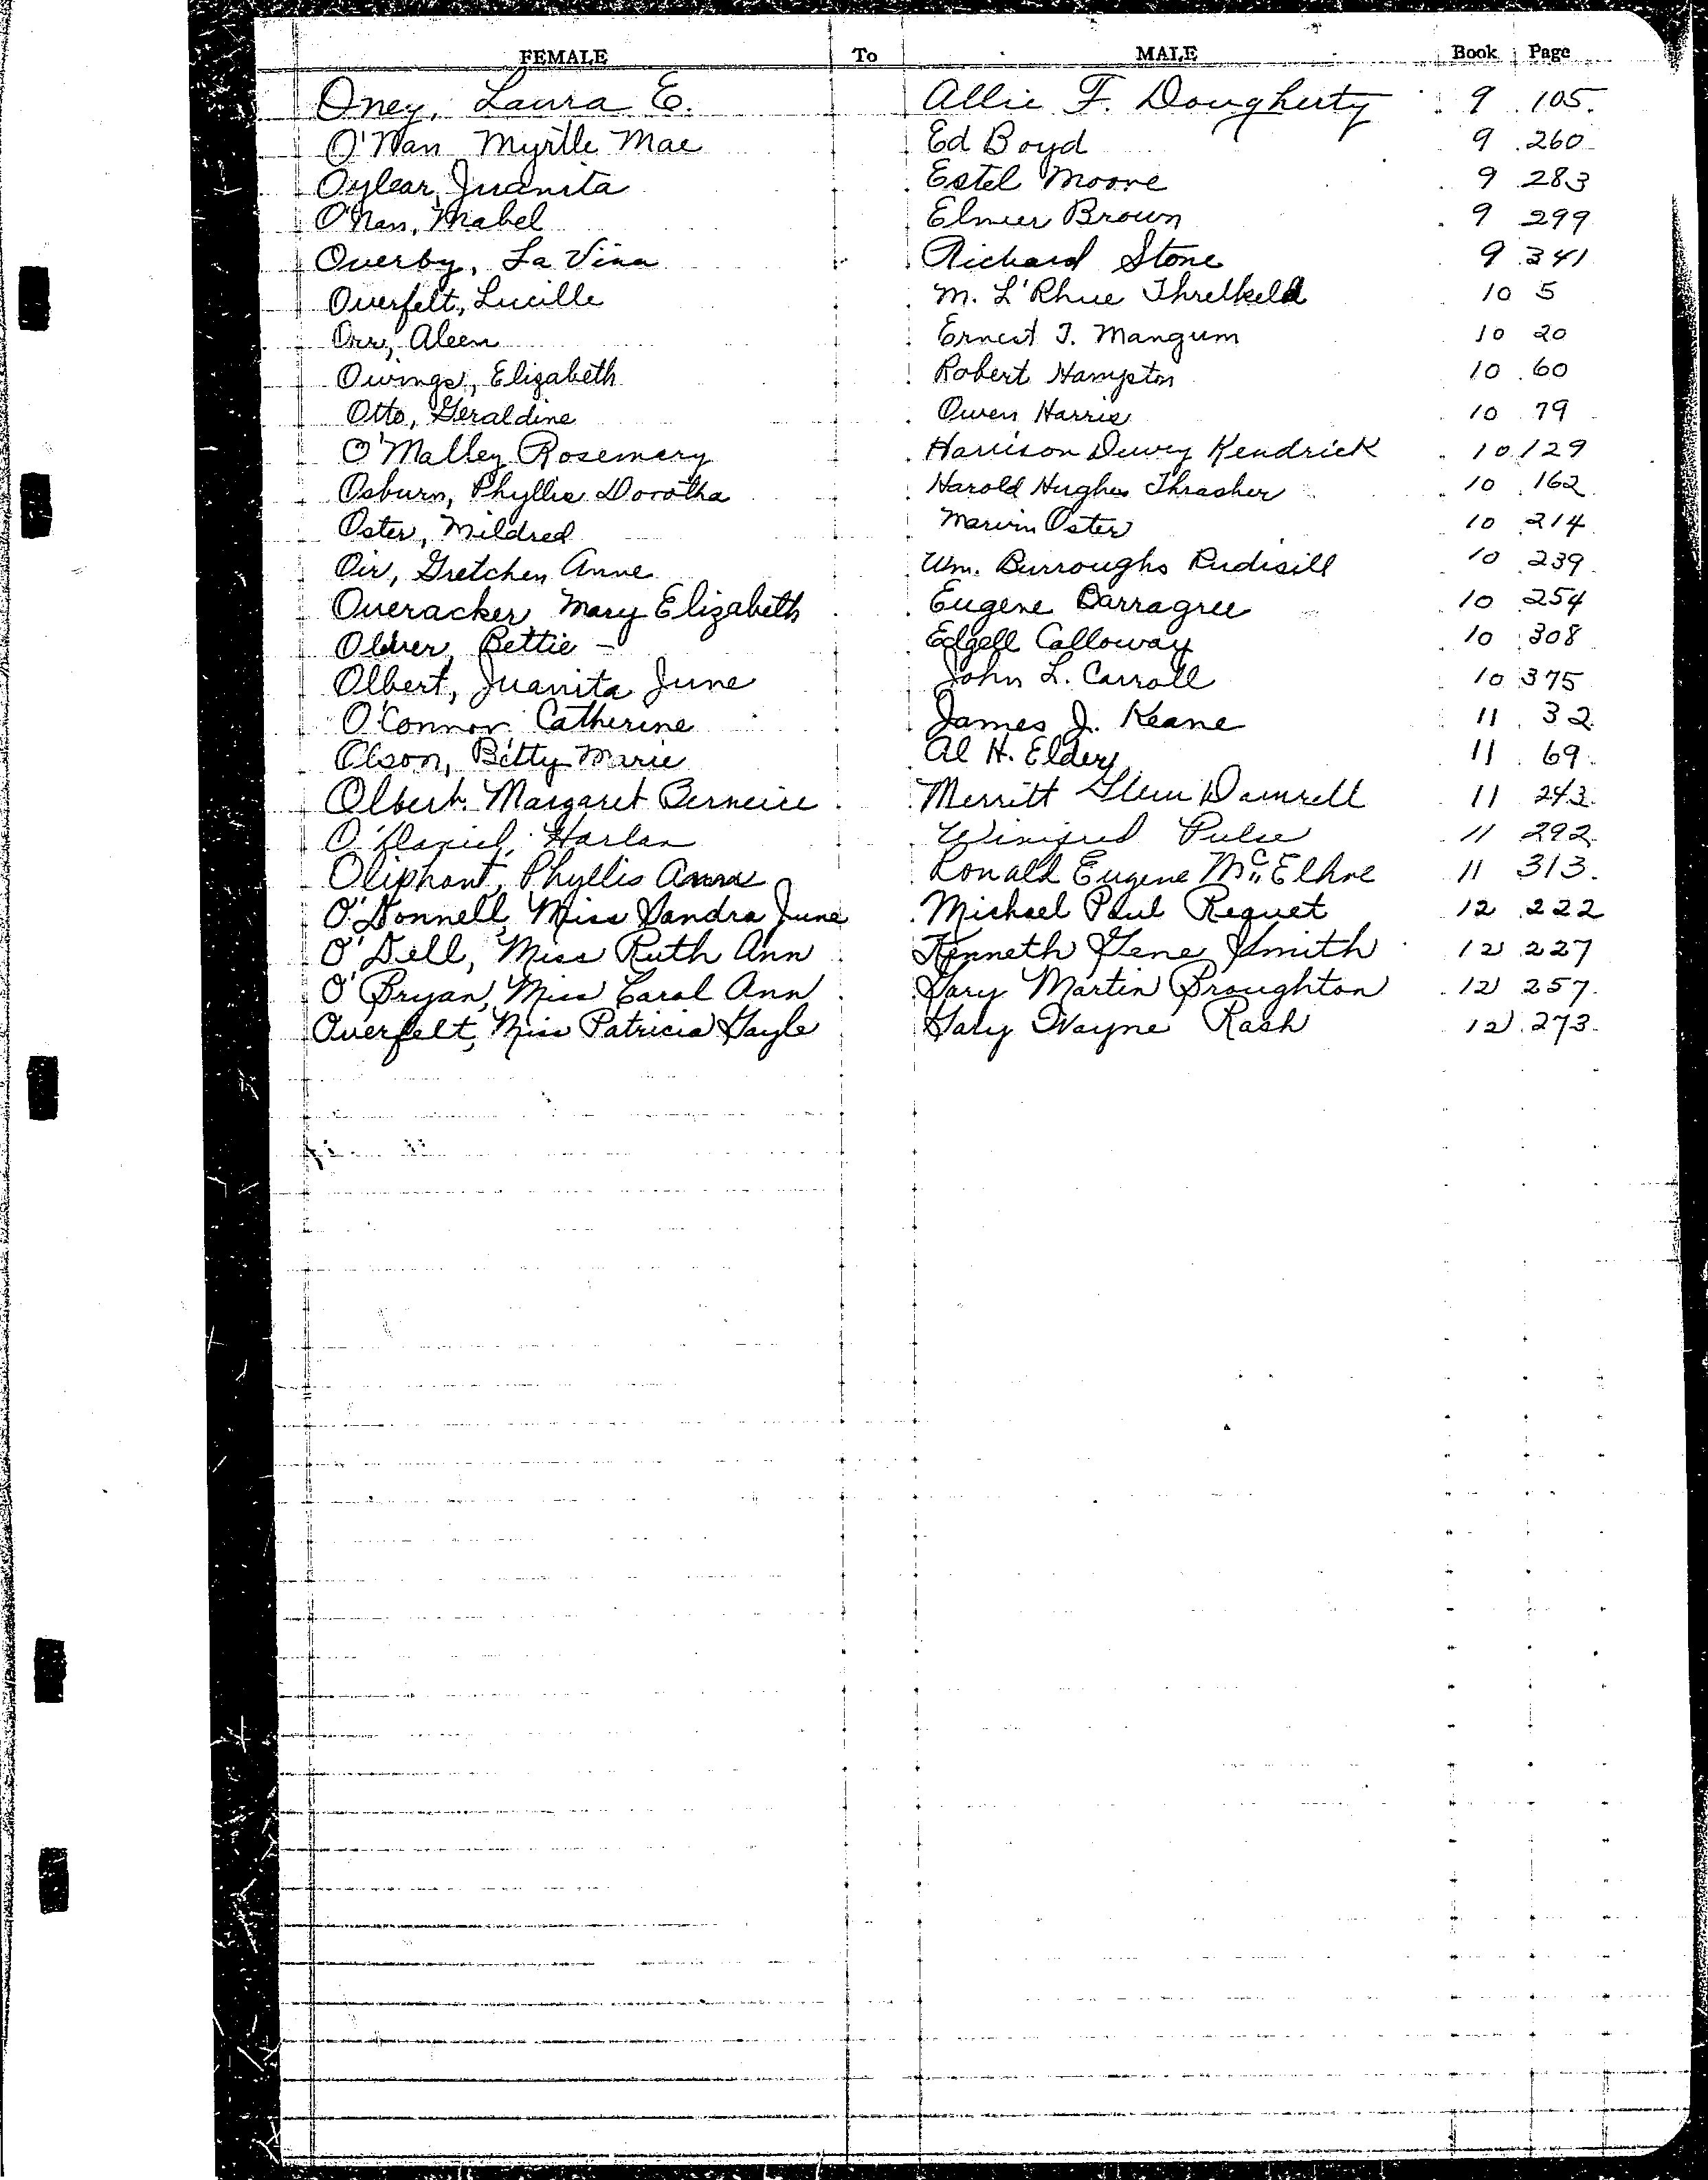 FEMALE To MALE Book Page
Oney, Laura E. Allie F. Dougherty 9 105
O'Nan Myrtle Mae Ed Boyd 9 260
Oylear, Juanita Estel Moore 9 283
O'Nan, Mabel Elmer Brown 9 299
Overby, La Vina Richard Stone 9 341
Overfelt, Lucille M. L'Rhue Threlkeld 10 5
Orr, Aleen Ernest T. Mangum 10 20
Owings, Elizabeth Robert Hampton 10 60
Otto, Geraldine Owen Harris 10 79
O'Malley Rosemary Harrison Dewey Kendrick 10 129
Osburn, Phyllis Dorotha Harold Hughes Thrasher 10 162
Oster, Mildred Marvin Oster 10 214
Oir, Gretchen Anne Wm. Burroughs Rudisill 10 239
Overacker Mary Elizabeth Eugene Barragree 10 254
Oliver, Bettie - Edgell Calloway 10 308
Olbert, Juanita June John L. Carroll 10 375
O'Connor Catherine James J. Keane 11 32
Olson, Betty Marie Al H. Elder 11 69
Olbert Margaret Berneice Merritt Glenn Damrell 11 243
O'Daniel, Harlan Winifred Pulse 11 292
Oliphant, Phyllis Ronald Eugene 11 313.
O'Donnell, Miss Sandra June Michael Paul Requet 12 222
O'Dell, Miss Ruth Ann Kenneth Gene Smith 12 227
O'Bryan, Miss Carol Ann Gary Martin Broughton 12 257
Overfelt, Miss Patricia Gayle Gary Wayne Rash 12 273